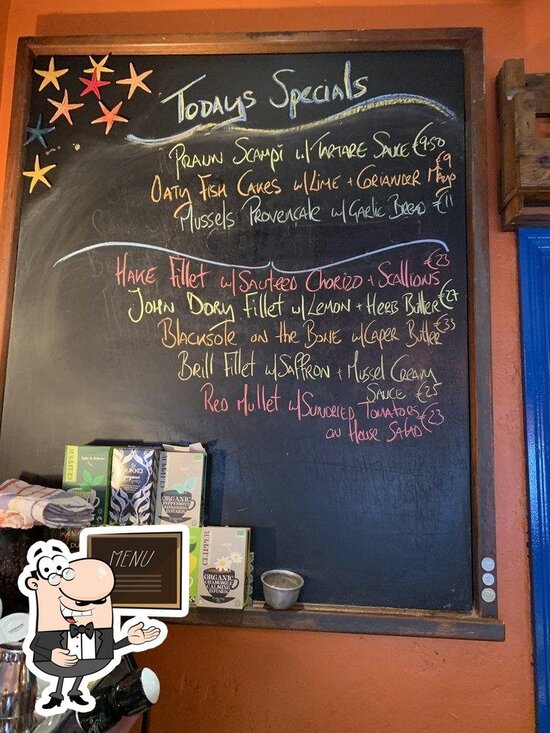 Todays Specials
Prawn Scampi w/ Tartare Sauce €9.50
Oaty Fish Cakes w/ Lime + Coriander Mayo €9
Mussels Provencale w/ Garlic Bread €11
Hake Fillet w/ Sauteed Chorizo + Scallions €23
John Dory Fillet w/ Lemon + Herb Butter €27
Blacksole on the Bone w/ Caper Butter €33
Brill Fillet w/ Saffron + Mussel Cream
Sauce €25
Red Mullet w/ Sundried Tomatoes €23
on House Salad
CLIPPER
pukka
CLIPPER
ORGANIC
PEPPERMINT
INFUSION
CLIPPER
ORGANIC
CHAMOMILE
INFUSION
MENU